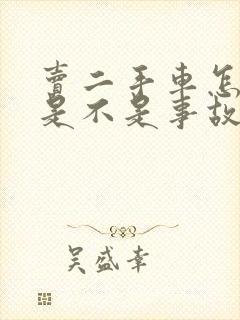 賣二手車怎
是不是事故
吴盛幸